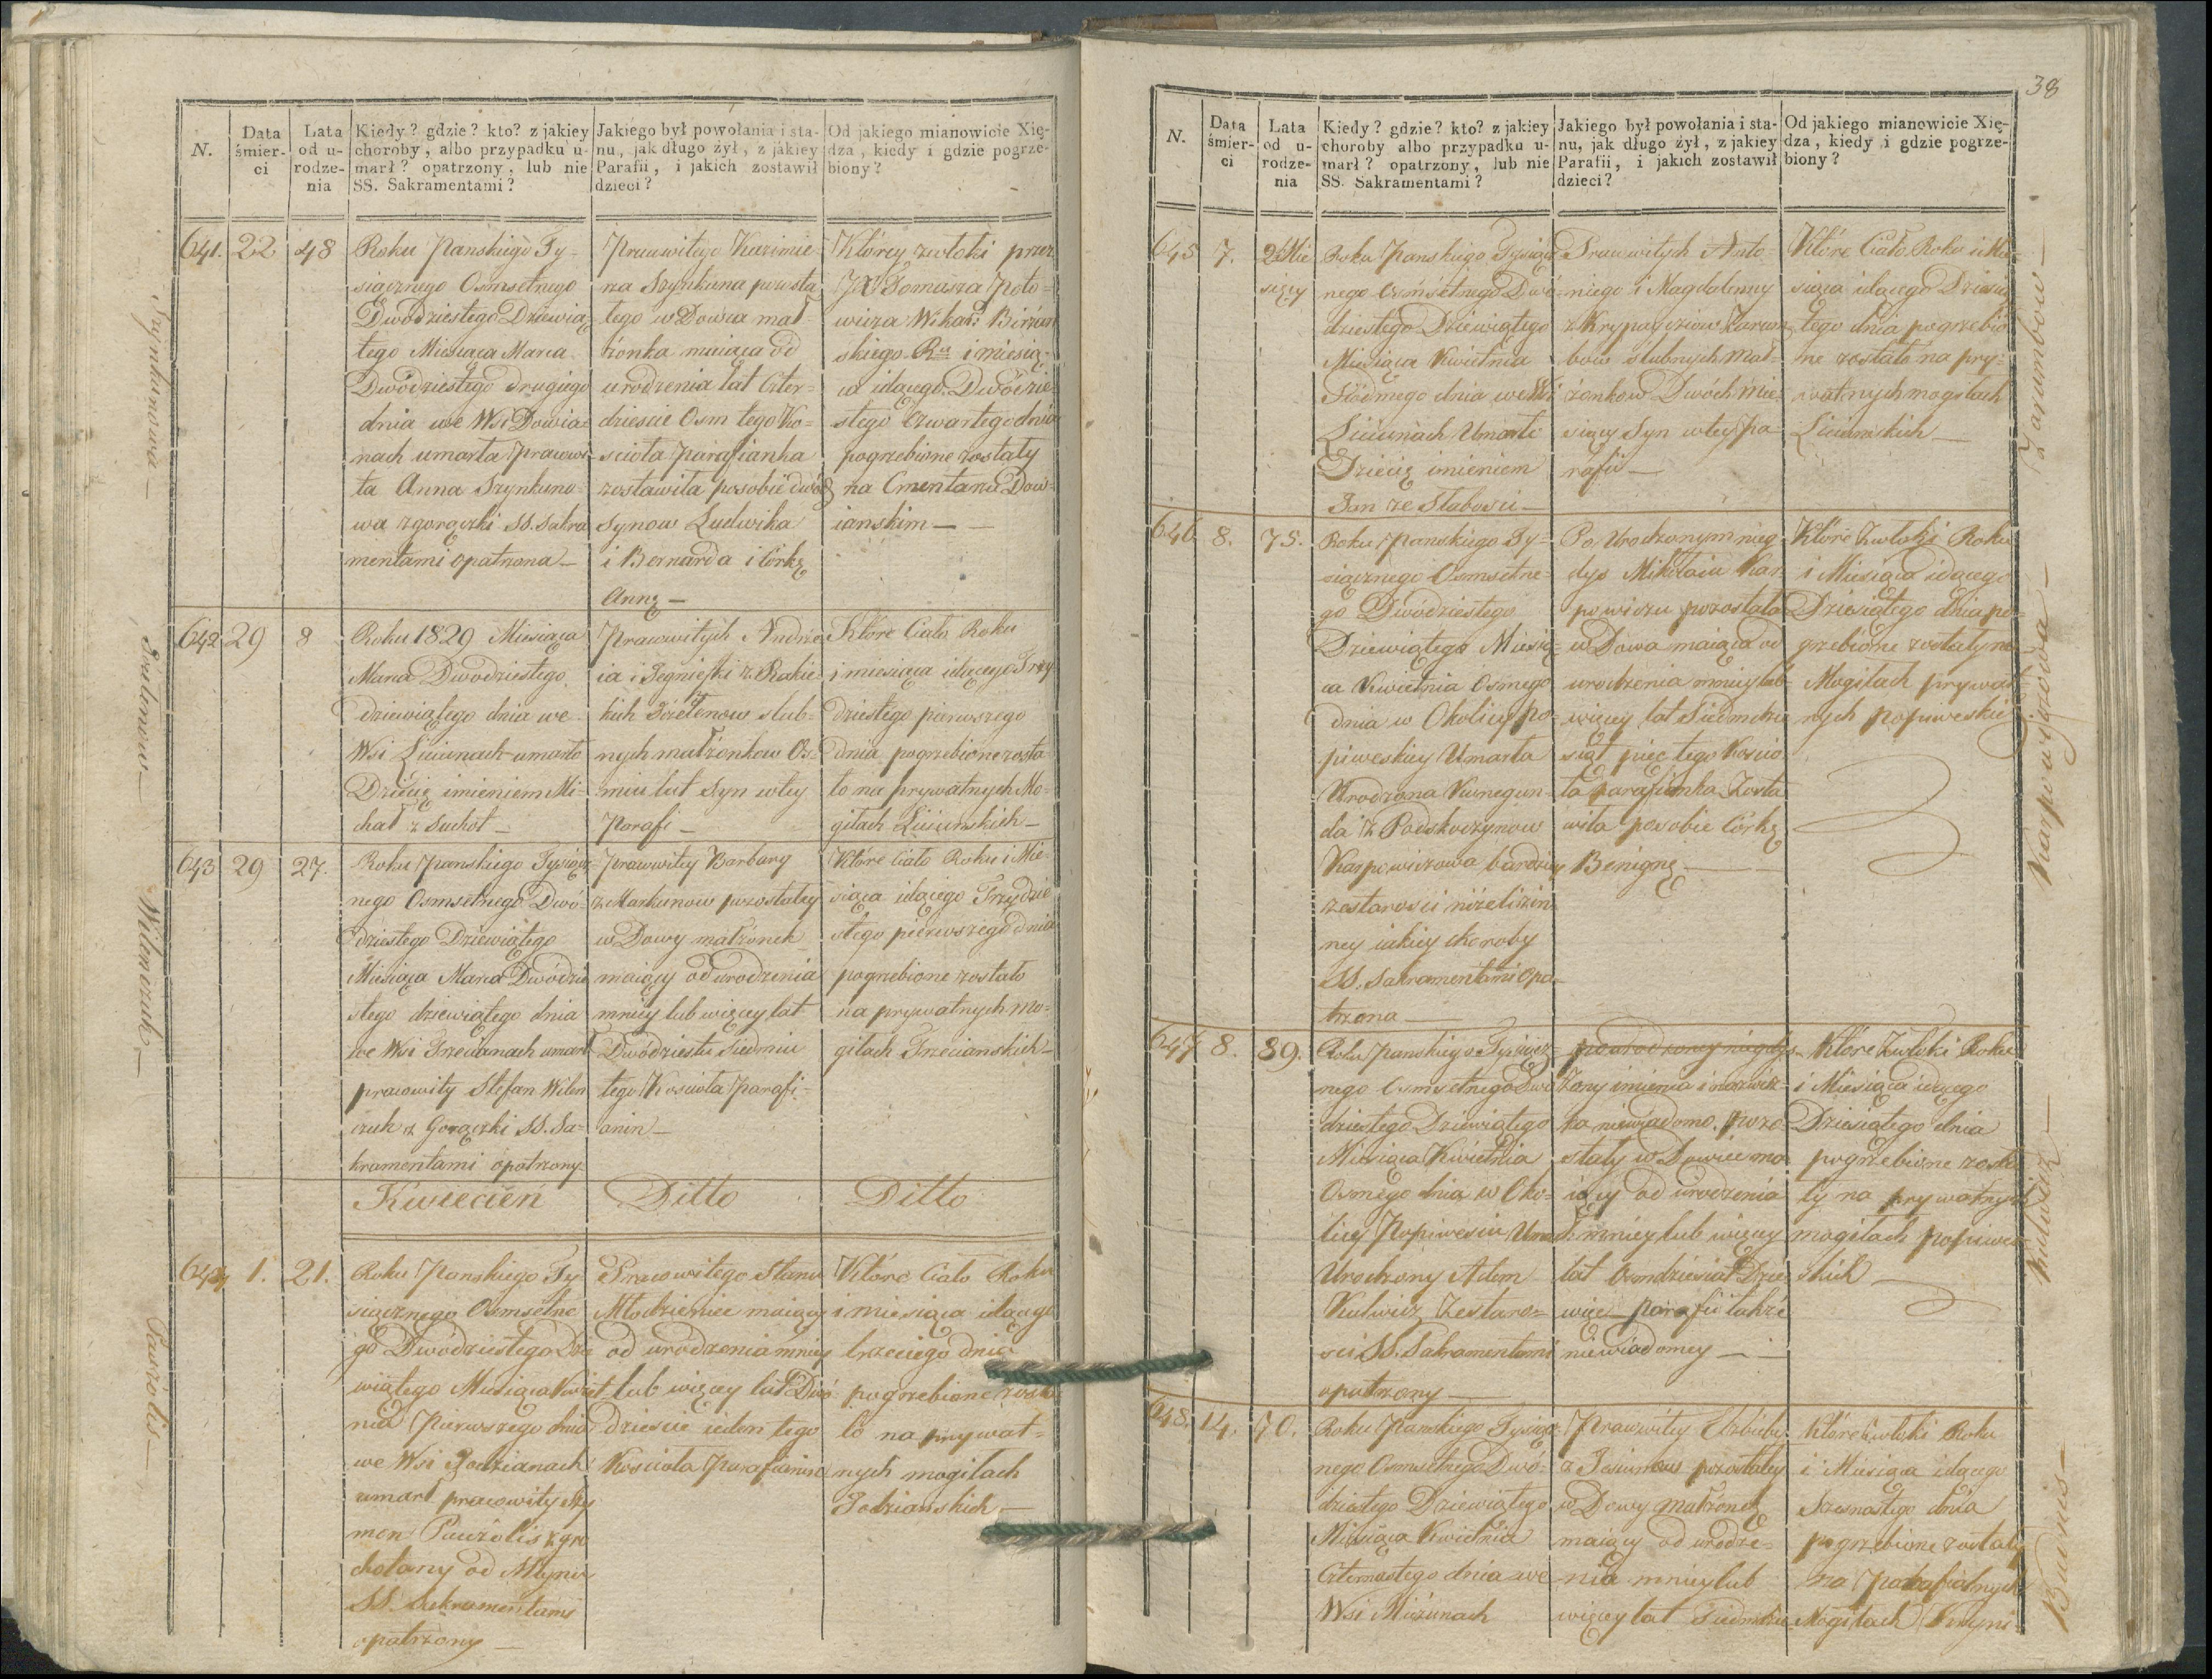 N.
Data śmier-
ci
Lata
od u-
rodze-
nia
Kiedy? gdzie? kto? z jakiey
choroby, albo przypadku u-
marł? opatrzony, lub nie
SS. Sakramentami?
Jakiego był powołania i sta-
nu, jak długo żył, z jakiey
Parafii, i jakich zostawił
dzieci?
Od jakiego mianowicie Xię-
dza, kiedy i gdzie pogrze-
biony?
641.
22
48
Roku Panskiego Ty-
siącznego Osmsetnego
Dwódziestego Dziewią-
tego Miesiąca Marca
Dwódziestego drugiego
dnia we Wsi Dowia-
nach umarła Pracowi-
ta Anna Szynkuno-
wa zgorączki SS. Sakra
mentami opatrzona
Pracowitego Kazimie-
rza Szynkuna pozosta
tego wDowca mał-
żonka maiąca od
urodzenia lat Czter-
dzieście Osm tego Ko-
ścioła Parafianka
zostawiła posobie dwóch
Synow Ludwika
i Bernarda i Córkę
Annę
Którey zwłoki przez
JX Tomasza Poto-
wicza Wikar: Birżan
skiego Ru i miesią-
ca idącego Dwódzie-
stego Czwartego dnia
pogrzebione zostały
na Cmentarzu Dow-
ianskim
Szynkunowa
642
29
8
Roku 1829 Miesiąca
Marca Dwodziestego
dziewiątego dnia we
Wsi Liciunach umarło
Dziecię imieniem Mi-
chał z Suchot
Pracowitych Andrze
ia i Jegnieszki z Rakie
kich Dzielenow slub-
nych małżonkow Os-
miu lat Syn wtey
Parafi
Które Ciało Roku
i miesiąca idącego Trzy
dziestego pierwszego
dnia pogrzebione zosta
ło na prywatnych Mo-
giłach Liciunskich
Dzielenow
643
29
27.
Roku Panskiego Tysiącz-
nego Osmsetnego Dwó-
dziestego Dziewiątego
Miesiąca Marca Dwódzie
stego dziewiątego dnia
we Wsi Trecianach umarł
pracowity Stefan Wilen
czuk z Gorączki SS. Sa-
kramentami opatrzony
Pracowitey Barbary
z Markunow pozostałey
wDowy małżonek
maiący od urodzenia
mniey lub więcey lat
Dwódziestu Siedmiu
tego Koscioła Parafi-
anin
Które Ciało Roku i Mie-
siąca idącego Trzydzie
stego pierwszego dnia
pogrzebione zostało
na prywatnych mo-
giłach Trecianskich
Wilenczuk
Kwiecień
Ditto
Ditto
644
1.
21.
Roku Panskiego Ty-
siącznego Osmsetne
go Dwódziestego Dzie
wiątego Miesiąca Kwiet
nia Pierwszego dnia
we Wsi Jodzianach
umarł pracowity Szy
mon Pawżolis zgru
chotany od Młyna
SS. Sakramentami
opatrzony
Pracowitego Stanu
Młodzieniec maiący
od urodzenia mniey
lub więcey lat Dwó-
dzieście ieden tego
Kościoła Parafianin
Które Ciało Roku
i miesiąca idącego
trzeciego dnia
pogrzebione zosta
ło na prywat-
nych mogiłach
Jodzianskich
Pawżolis
38
N.
Data
śmier-
ci
Lata
od u-
rodze-
nia
Kiedy? gdzie? kto? z jakiey
choroby albo przypadku u-
marł? opatrzony, lub nie
SS. Sakramentami?
Jakiego był powołania i sta-
nu, jak długo żył, z jakiey
Parafii, i jakich zostawił
dzieci?
Od jakiego mianowicie Xię-
dza, kiedy i gdzie pogrze-
biony?
645
7.
2 Mie
sięcy
Roku Panskiego Tysiącz
nego Osmsetnego Dwó-
dziestego Dziewiątego
Miesiąca Kwietnia
Siódmego dnia we Wsi
Liciunach Umarło
Dziecię imieniem
Jan ze Słabosci
Pracowitych Anto-
niego i Magdalenny
z Krypayciow Zarum
bow slubnych mał-
żonkow Dwóch mie-
sięcy Syn wtey Pa
rafii
Które Ciało Roku i Mie-
siąca idącego Dziesią-
tego dnia pogrzebio
ne zostało na pry-
watnych mogiłach
Liciunskich
Zarumbow
646
8.
75.
Roku Panskiego Ty-
siącznego Osmsetne-
go Dwódziestego
Dziewiątego Miesią-
ca Kwietnia Osmego
dnia w Okolicy Po-
piweskiey Umarła
Urodzona Kunegun-
da z Podskoczynow
Karpowiczowa bardziey
zestarosci niżeli zin
ney iakiey choroby
SS. Sakramentami Opa-
trzona
Po Urodzonym nieg-
dys Mikołaiu Kar-
powiczu pozostała
wDowa maiąca od
urodzenia mniey lub
więcey lat Siedmdzie
siąt pięc tego Koscio
ła Parafianka Zosta
wiła posobie Córkę
Benignę
Które Zwłoki Roku
i Miesiąca idącego
Dziesiątego dnia po-
grzebione zostały na
Mogiłach prywat
nych Popiweskich
Karpowiczowa
647
8.
89.
Roku Panskiego Tysiącz-
nego Osmsetnego Dwó
dziestego Dziewiątego
Miesiąca Kwietnia
Osmego dnia w Oko-
licy Popiwesiu Umarł
Urodzony Adam
Kulwicz Zestaro-
sci SS. Sakramentami
opatrzony
po urodzoney niegdys
Zony imienia i nazwis-
ka niewiadomo, pozo
stały wDowiec ma
iący od urodzenia
mniey lub więcey
lat Osmdziesiąt Dzie
więc parafii takze
niewiadomey
Które Zwłoki Roku
i Miesiąca idącego
Dziesiątego dnia
pogrzebione zosta
ły na prywatnych
mogiłach popiwe
skich
Kulwicz
648.
14.
70.
Roku Panskiego Tysiącz
nego Osmsetnego Dwó-
dziestego Dziewiątego
Miesiąca Kwietnia
Czternastego dnia we
Wsi Miżunach
Pracowitey Elżbiety
z Jasiunow pozostałey
wDowy Małżonek
maiący od urodze-
nia mniey lub
więcey lat Siedmdzie
Które Zwłoki Roku
i Miesiąca idącego
Szesnastego dnia
pogrzebione zostały
na Parafialnych
Mogiłach Kryni-